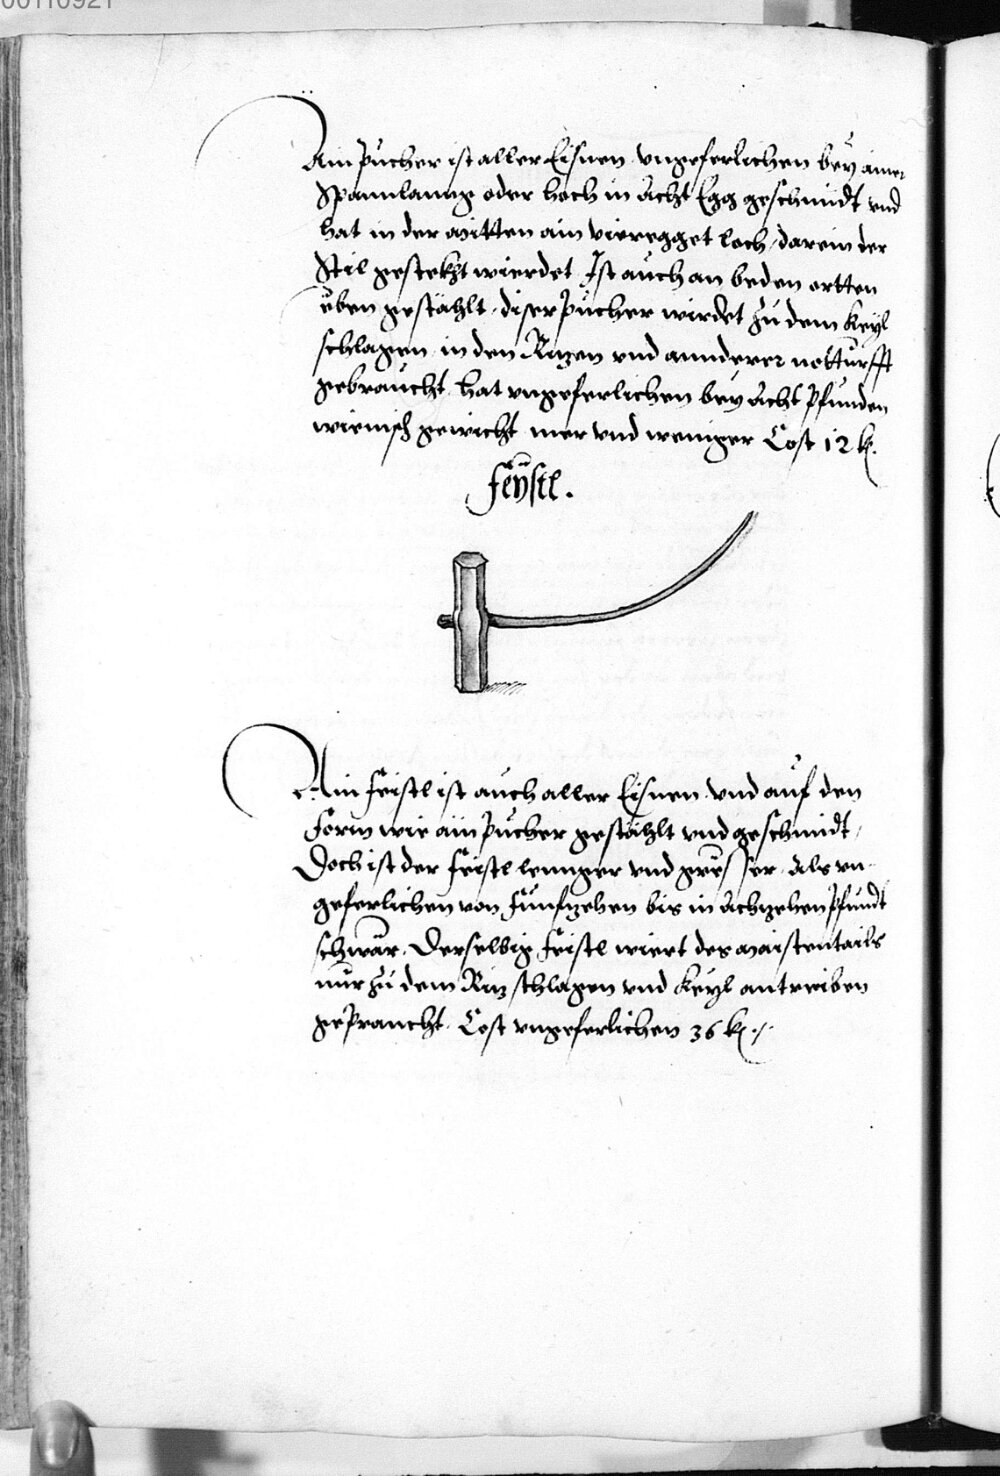 Ain Pucher ist aller Eisnen vngeferlichen bey ainer
Spannlanng oder hoch in Acht Egg geschmidt vnd
hat in der mitten ain vieregget loch, darein der
Stil gestekht wierdet. Ist auch an beden ortten
eben gestählt, diser Pucher wirdet zu dem Keyl
schlagen in den Ritzen vnd annderer notturfft
gebraucht. hat vngeferlichen bey Acht Pfunden
wienisch gewicht mer vnd weniger Cost 12 k.
Feÿstl.
Ain Feistl ist auch aller Eisnen vnd auf den
Form wie ain Pucher gestählt vnd geschmidt,
Doch ist der Feistl lennger vnd grösser. Als vn-
geferlichen von Funfzehen bis in Achzehen Pfundt
schwär. Derselbig Feistl wiert des maistentails
nur zu dem Ritz schlagen vnd Keyl antreiben
gepraucht. Cost vngeferlichen 36 k.